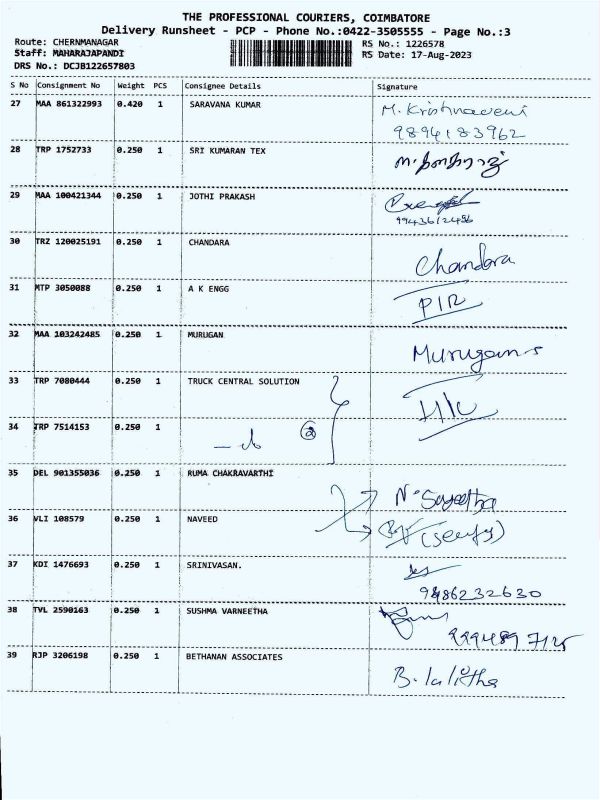 THE PROFESSIONAL COURIERS, COIMBATORE
Delivery Runsheet - PCP - Phone No.:0422-3505555 - Page No.:3
Route: CHERNMANAGAR RS No.: 1226578
Staff: MAHARAJAPANDI RS Date: 17-Aug-2023
DRS No.: DCJB122657803
S No Consignment No Weight PCS Consignee Details Signature
27 MAA 861322993 0.420 1 SARAVANA KUMAR M. Krishnaveni
9894183962
28 TRP 1752733 0.250 1 SRI KUMARAN TEX
29 MAA 100421344 0.250 1 JOTHI PRAKASH
9943612486
30 TRZ 120025191 0.250 1 CHANDARA Chandara
31 MTP 3050088 0.250 1 A K ENGG PIR
32 MAA 103242485 0.250 1 MURUGAN Murugan
33 TRP 7080444 0.250 1 TRUCK CENTRAL SOLUTION
34 TRP 7514153 0.250 1 2
35 DEL 901355036 0.250 1 RUMA CHAKRAVARTHI N. Sageetha
36 VLI 108579 0.250 1 NAVEED
37 KDI 1476693 0.250 1 SRINIVASAN.
9486232630
38 TVL 2590163 0.250 1 SUSHMA VARNEETHA
39 RJP 3206198 0.250 1 BETHANAN ASSOCIATES B. lalitha